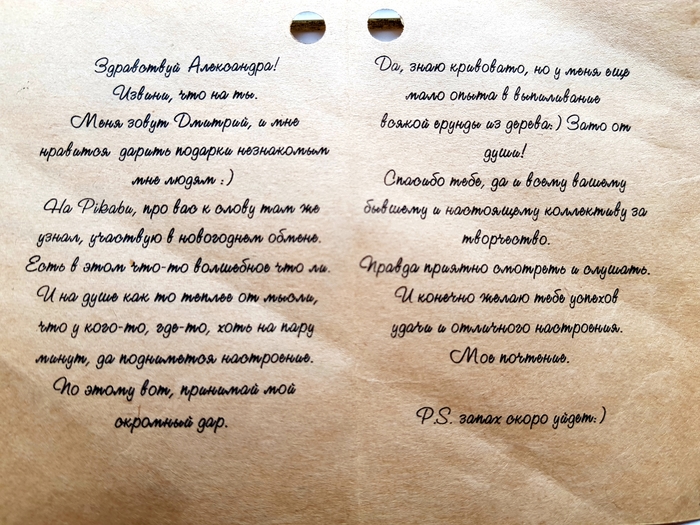 Здравствуй Александра!
Извини, что на ты.
Меня зовут Дмитрий, и мне
нравится дарить подарки незнакомым
мне людям :)
На Pikabu, про вас к слову там же
узнал, участвую в новогоднем обмене.
Есть в этом что-то волшебное что ли.
И на душе как то теплее от мысли,
что у кого-то, где-то, хоть на пару
минут, да поднимется настроение.
По этому вот, принимай мой
скромный дар.
Да, знаю кривовато, но у меня еще
мало опыта в выпиливание
всякой ерунды из дерева:) Зато от
души!
Спасибо тебе, да и всему вашему
бывшему и настоящему коллективу за
творчество.
Правда приятно смотреть и слушать.
И конечно желаю тебе успехов
удачи и отличного настроения.
Мое почтение.
P.S. запах скоро уйдет:)